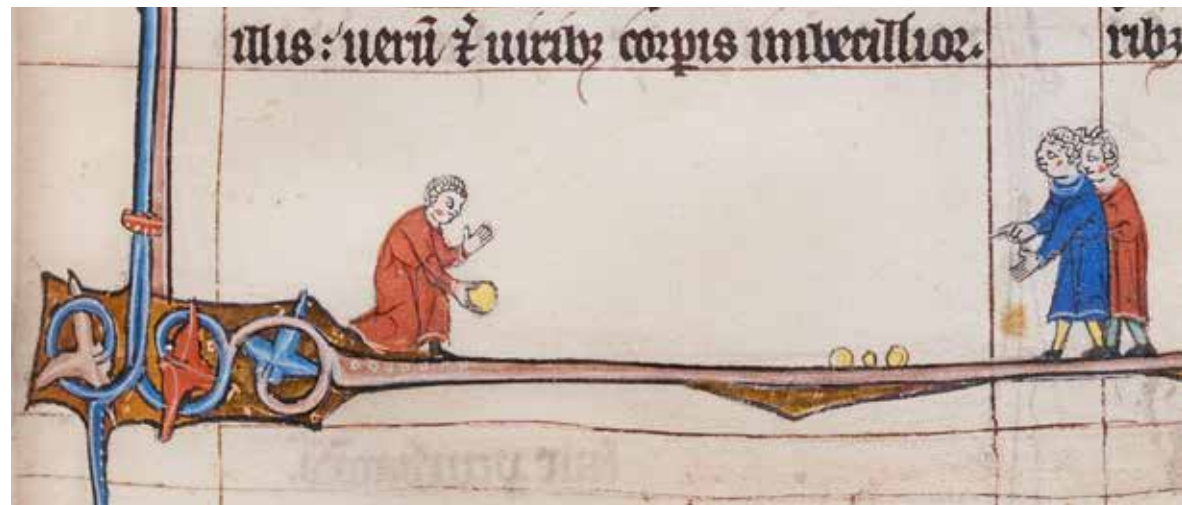 illis: uerũ ⁊ uiribꝫ corpis imbecillior.
ribꝫ